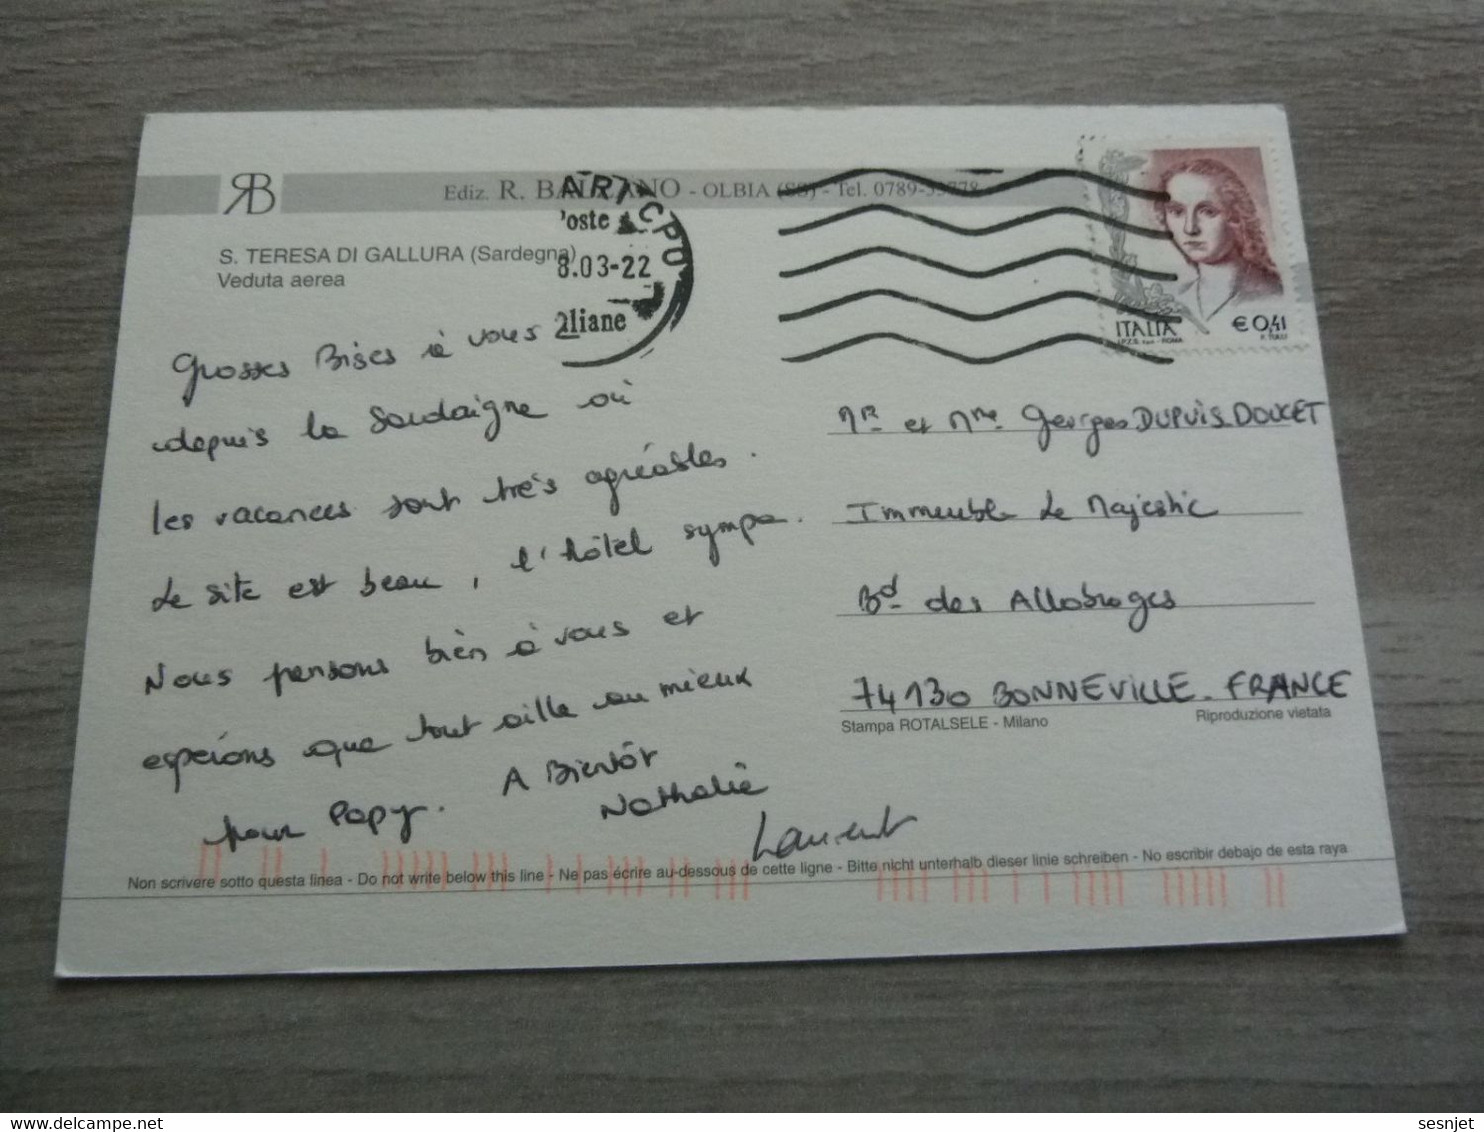 RB
Ediz. R. BALZANO - OLBIA (SS) - Tel. 0789-
S. TERESA DI GALLURA (Sardegna)
Veduta aerea
ART CPO
'oste
8.03-22
2liane
ITALIA
€0,41
I.P.Z.S. S.p.A. - ROMA
Grosses Bises à vous 2
depuis la Sardaigne où
les vacances sont très agréables.
Le site est beau, l'hôtel sympa.
Nous pensons bien à vous et
espérons que tout aille au mieux
pour Papy. A Bientôt
Nathalie
Laurent
Mr et Mme Georges DUPUIS.DOUCET
Immeuble Le Majestic
Bd des Allobroges
74130 BONNEVILLE - FRANCE
Stampa ROTALSELE - Milano
Riproduzione vietata
Non scrivere sotto questa linea - Do not write below this line - Ne pas écrire au-dessous de cette ligne - Bitte nicht unterhalb dieser linie schreiben - No escribir debajo de esta raya
delcampe.net
sesnjet